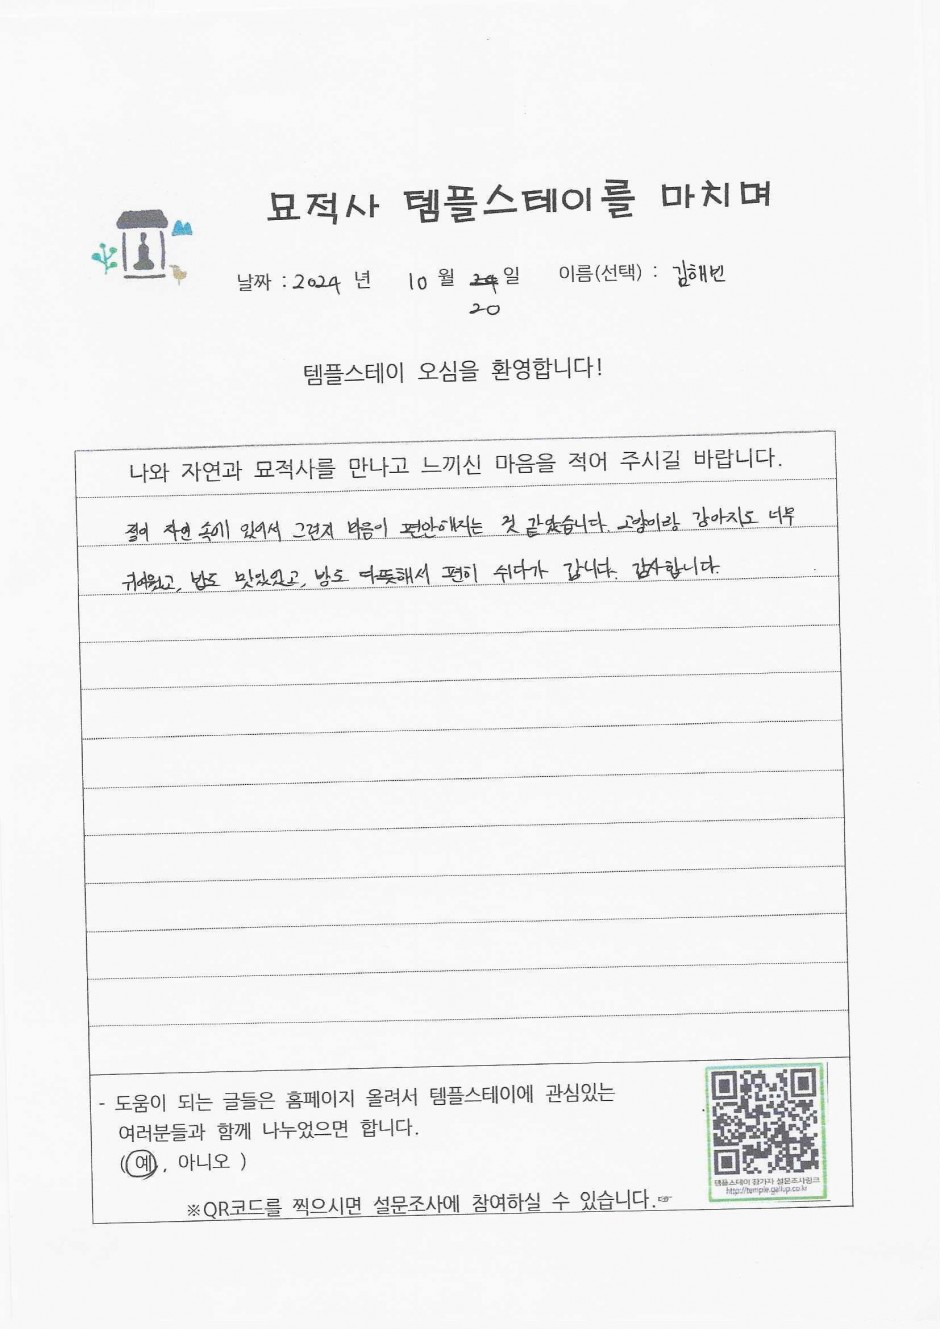 묘적사 템플스테이를 마치며
날짜 : 2024 년 10 월 24 일 이름(선택) : 김해빈
20
템플스테이 오심을 환영합니다!
나와 자연과 묘적사를 만나고 느끼신 마음을 적어 주시길 바랍니다.
절이 자연 속에 있어서 그런지 마음이 편안해지는 것 같았습니다. 고양이랑 강아지도 너무
귀여웠고, 밥도 맛있었고, 방도 따뜻해서 편히 쉬다가 갑니다. 감사합니다.
- 도움이 되는 글들은 홈페이지 올려서 템플스테이에 관심있는
여러분들과 함께 나누었으면 합니다.
(예, 아니오 )
템플스테이 참가자 설문조사링크
http://temple.gallup.co.kr
※QR코드를 찍으시면 설문조사에 참여하실 수 있습니다.☞